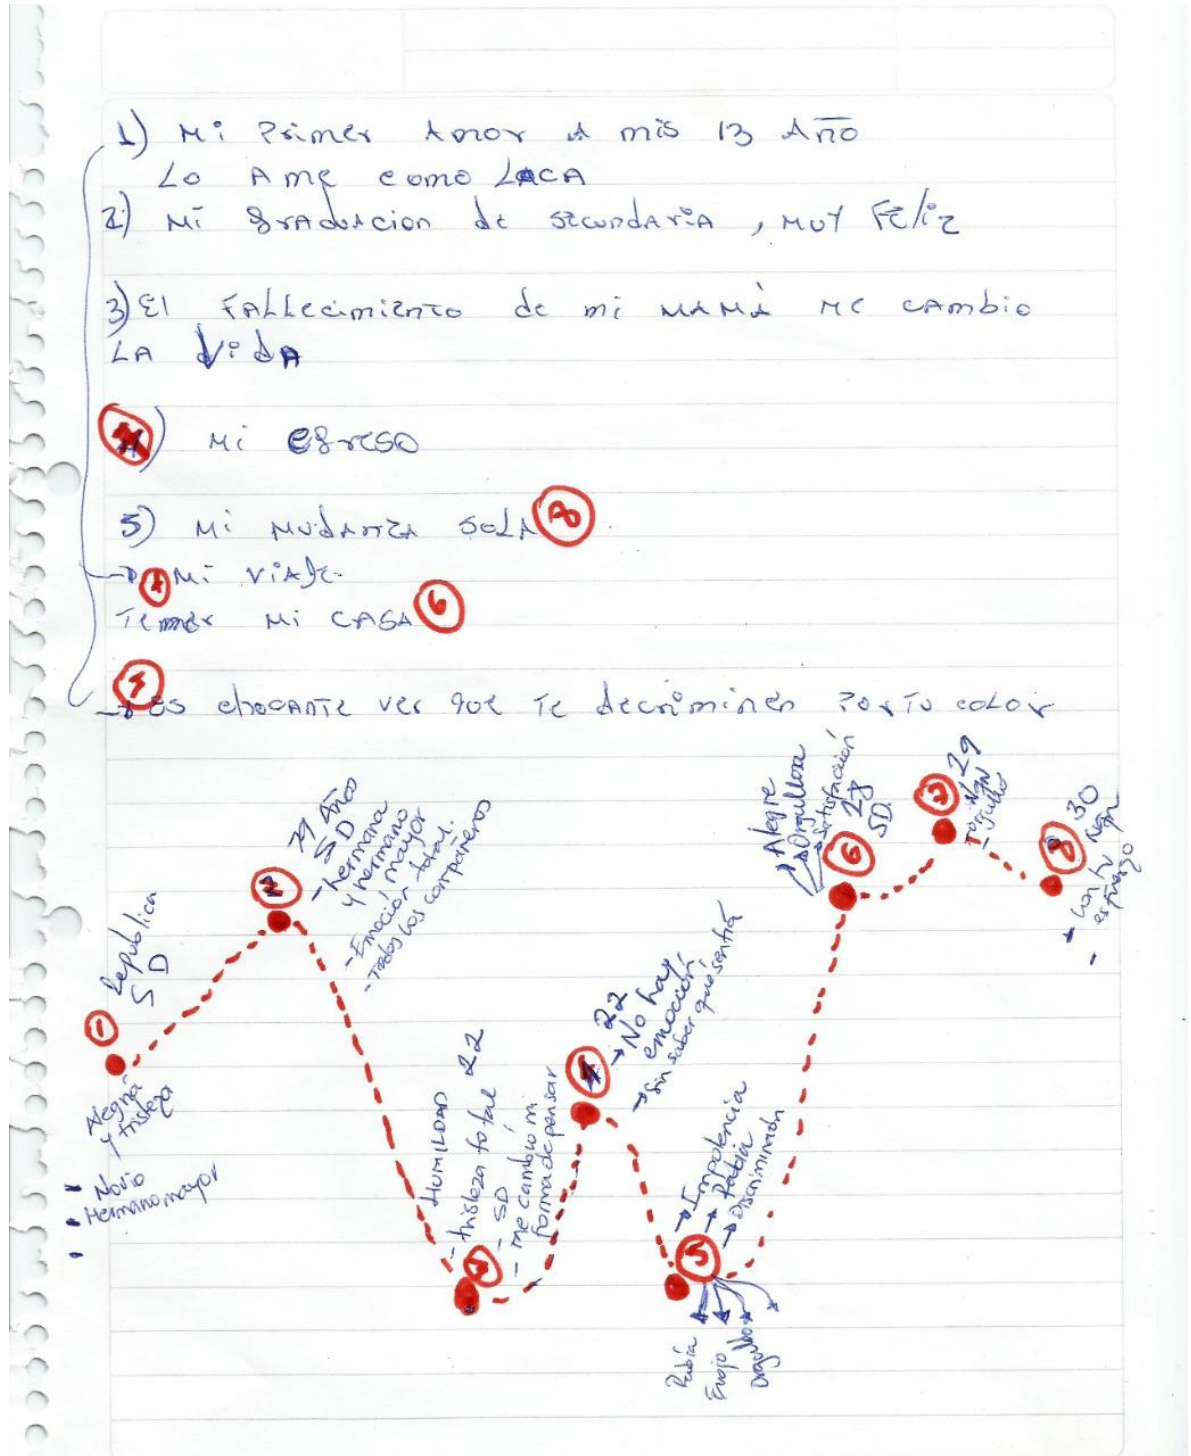 1) Mi Primer Amor A mis 13 Año
Lo Ame como LOCA
2) Mi graduacion de secundaria, MUY Feliz
3) El FALLecimiento de mi MAMÁ Me cambio
LA Vida
4) Mi egreso
5) Mi Mudanza SOLA 8
→ 7 Mi viaje.
Temer Mi CASA 6
5
→ es chocante ver que te decriminen Por Tu coLor
1
Republica
SD
Alegría
y tristeza
- Novio
- Hermano mayor
2
Años
SD
- hermana
y hermano
mayor
- Emoción total.
- Todos los compañeros
3
HUMILDAD
- tristeza total 22
- SD
- me cambió mi
forma de pensar
4
22
→ No hay
emoción
→ Sin saber qué sentía
5
→ Impotencia
→ Rabia
→ Discriminación
Rabia
Enojo
Orgullo
6
28
SD.
Alegre
Orgullosa
Satisfacción
7
29
Nqn
orgullo
8
30
Nqn
- con tu
esfuerzo